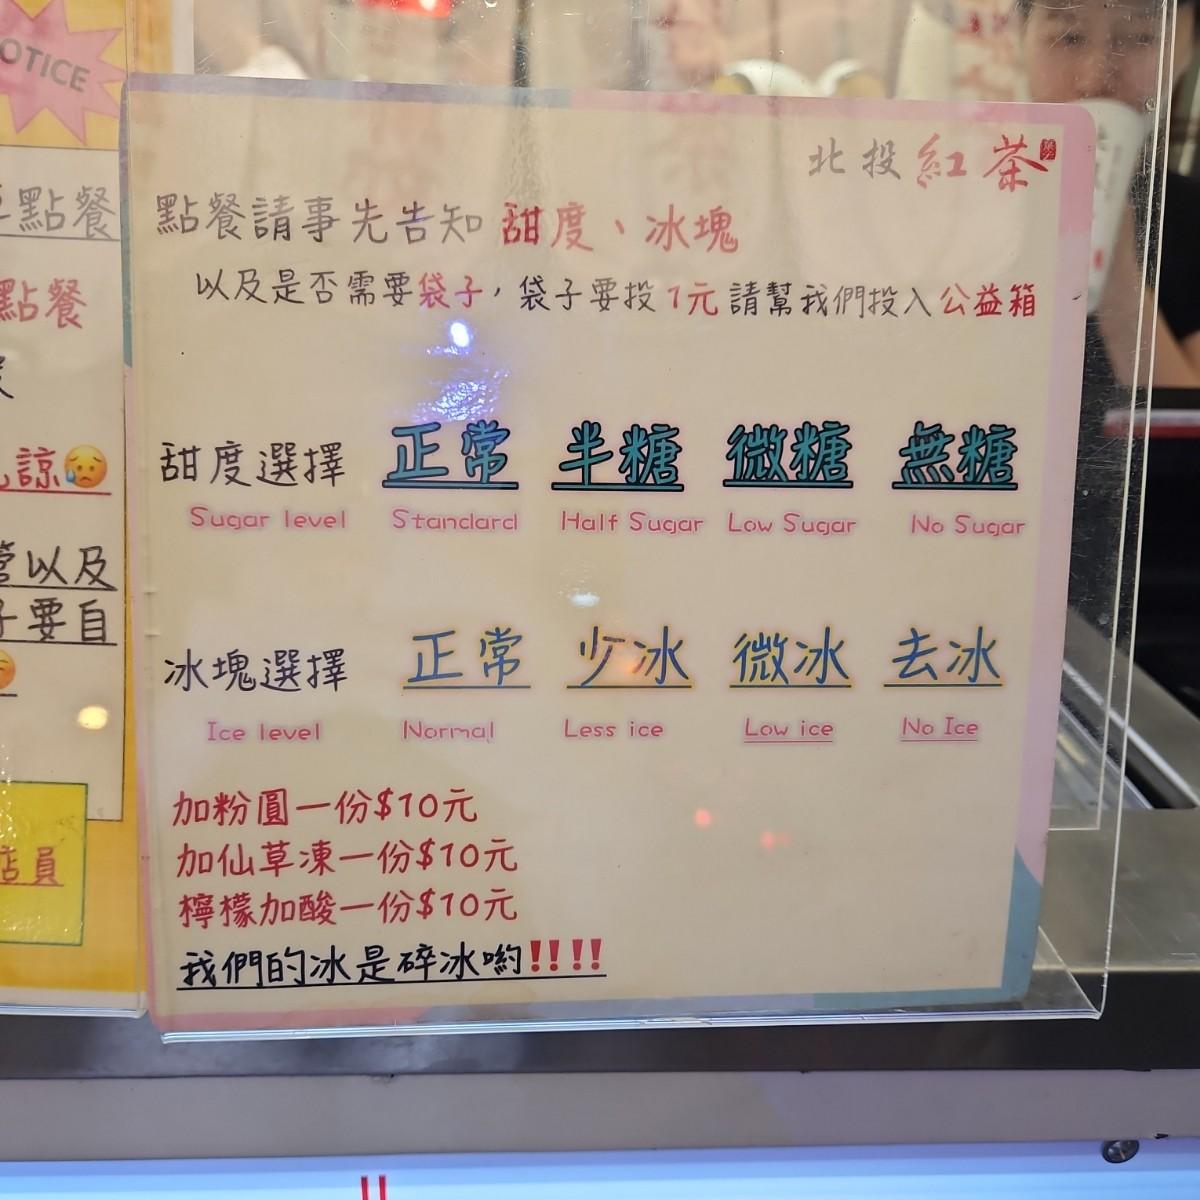 OTICE
點餐
點餐
諒
以及
要自
店員
北投紅茶
點餐請事先告知 甜度、冰塊
以及是否需要袋子，袋子要投1元 請幫我們投入公益箱
甜度選擇 正常 半糖 微糖 無糖
Sugar level Standard Half Sugar Low Sugar No Sugar
冰塊選擇 正常 少冰 微冰 去冰
Ice level Normal Less ice Low ice No Ice
加粉圓一份$10元
加仙草凍一份$10元
檸檬加酸一份$10元
我們的冰是碎冰喲!!!!!!